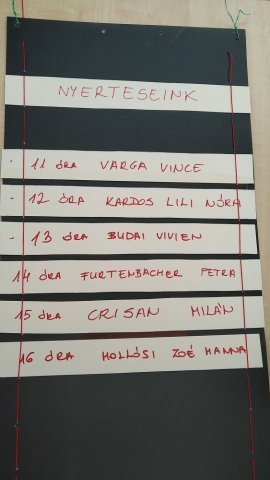 NYERTESEINK
- 11 ÓRA VARGA VINCE
- 12 ÓRA KARDOS LILI NÓRA
- 13 ÓRA BUDAI VIVIEN
14 ÓRA FURTENBACHER PETRA
15 ÓRA CRISAN MILÁN
16 ÓRA HOLLÓSI ZOÉ HANNA